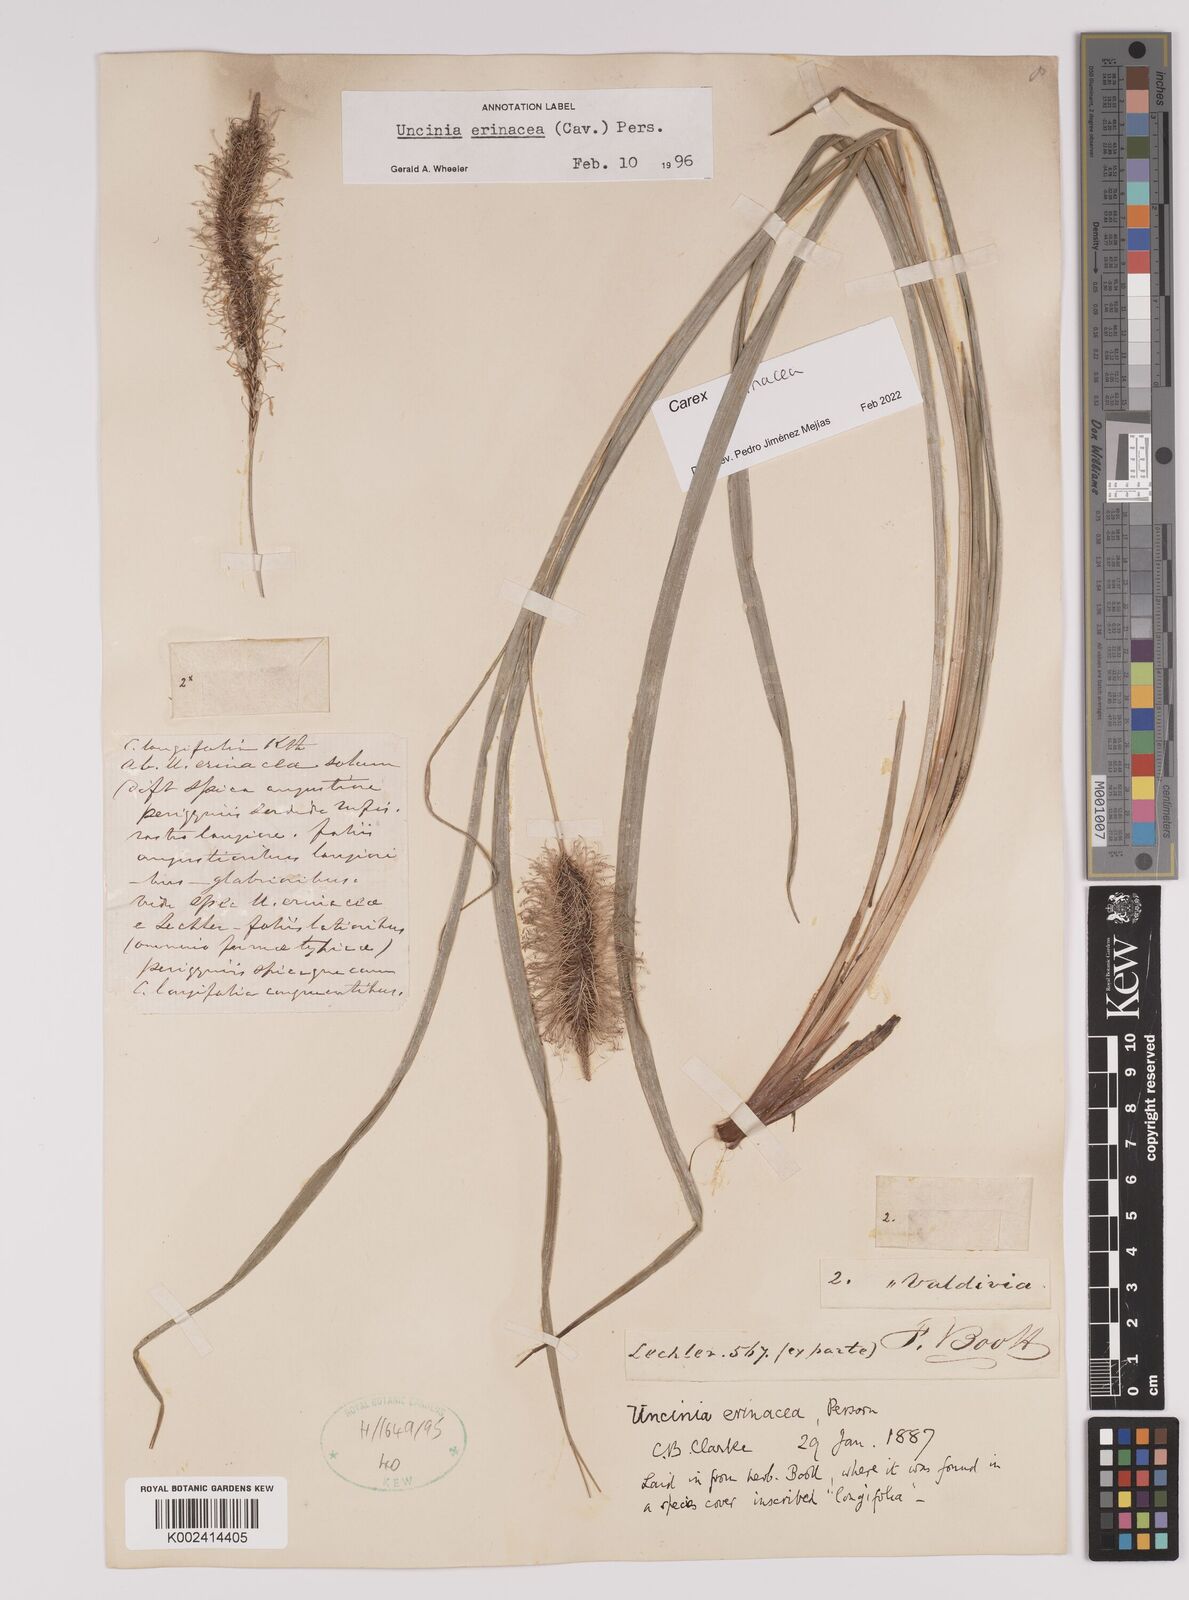 ANNOTATION LABEL
Uncinia erinacea (Cav.) Pers.
Gerald A. Wheeler Feb. 10 1996
Carex inacea
Pedro Jiménez Mejías Feb 2022
2x
C. longifolia Kth
ab. U. erinacea solum
Dift spica angustiore
perigyniis sordide rufis.
rostro longiore. foliis
angustioribus longiori
-bus - glabrioribus.
vide spec U. erinacea
e Lechler - foliis latioribus
(omnino forma typica)
perigyniis spicaque cum
C. longifolia congruentibus.
2.
2. " Valdivia.
Lechler. 567. (ex parte) F. Boott
Uncinia erinacea, Persoon
C.B. Clarke 29 Jan. 1887
Laid in from herb. Boott, where it was found in
a species cover inscribed "longifolia" -
ROYAL BOTANIC GARDENS
H/1649/95
40
KEW
ROYAL BOTANIC GARDENS KEW
K002414405
inches
cm
Density
Don Williams
M001007
Kew
Royal Botanic Gardens
copyright reserved
0 1 2 3 4 5 6 7 8 9 10
cm